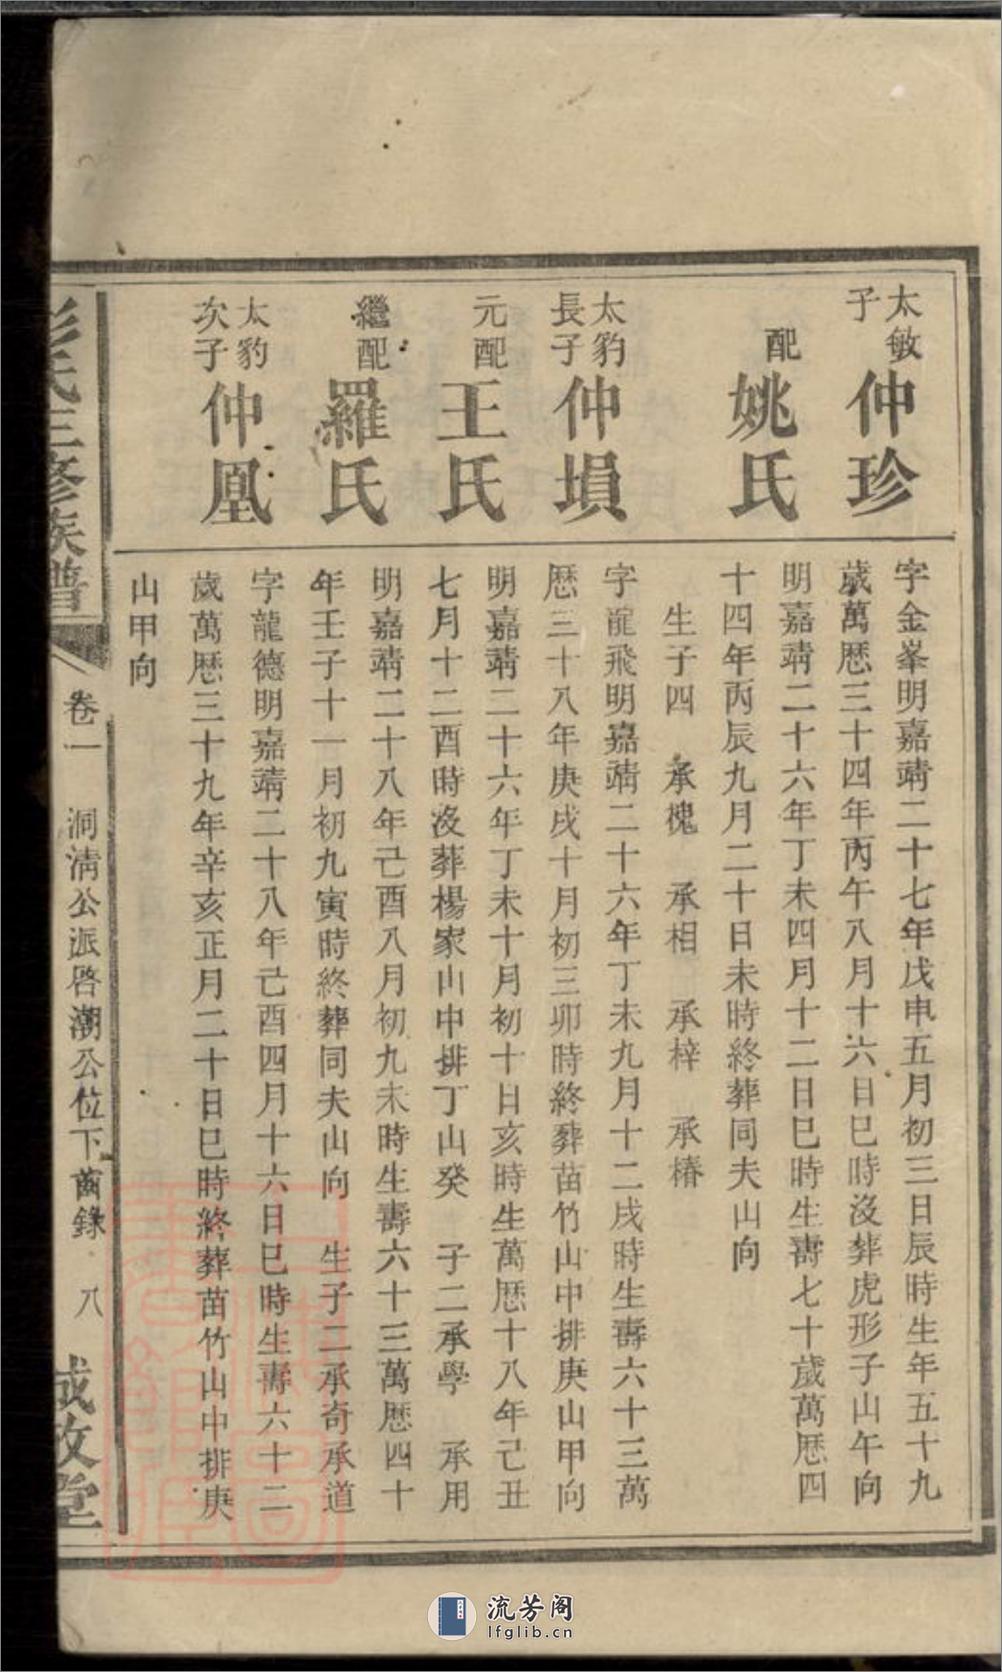 太敏
子
仲珍
字金峯明嘉靖二十七年戊申五月初三日辰時生年五十九
歲萬歷三十四年丙午八月十六日巳時沒葬虎形子山午向
配
姚氏
明嘉靖二十六年丁未四月十二日巳時生壽七十歲萬歷四
十四年丙辰九月二十日未時終葬同夫山向
生子四 承槐 承相 承梓 承椿
太豹
長子
仲塤
字龍飛明嘉靖二十六年丁未九月十二戌時生壽六十三萬
歷三十八年庚戌十月初三卯時終葬苗竹山中排庚山甲向
元配
王氏
明嘉靖二十六年丁未十月初十日亥時生萬歷十八年己丑
七月十二酉時沒葬楊家山中排丁山癸 子二承學 承用
繼配
羅氏
明嘉靖二十八年己酉八月初九未時生壽六十三萬歷四十
年壬子十一月初九寅時終葬同夫山向 生子二承奇承道
太豹
次子
仲凰
字龍德明嘉靖二十八年己酉四月十六日巳時生壽六十二
歲萬歷三十九年辛亥正月二十日巳時終葬苗竹山中排庚
山甲向
氏三修族譜
卷一
洞淸公派啓潮公位下齒錄
八
敦堂
流芳阁
lfglib.cn